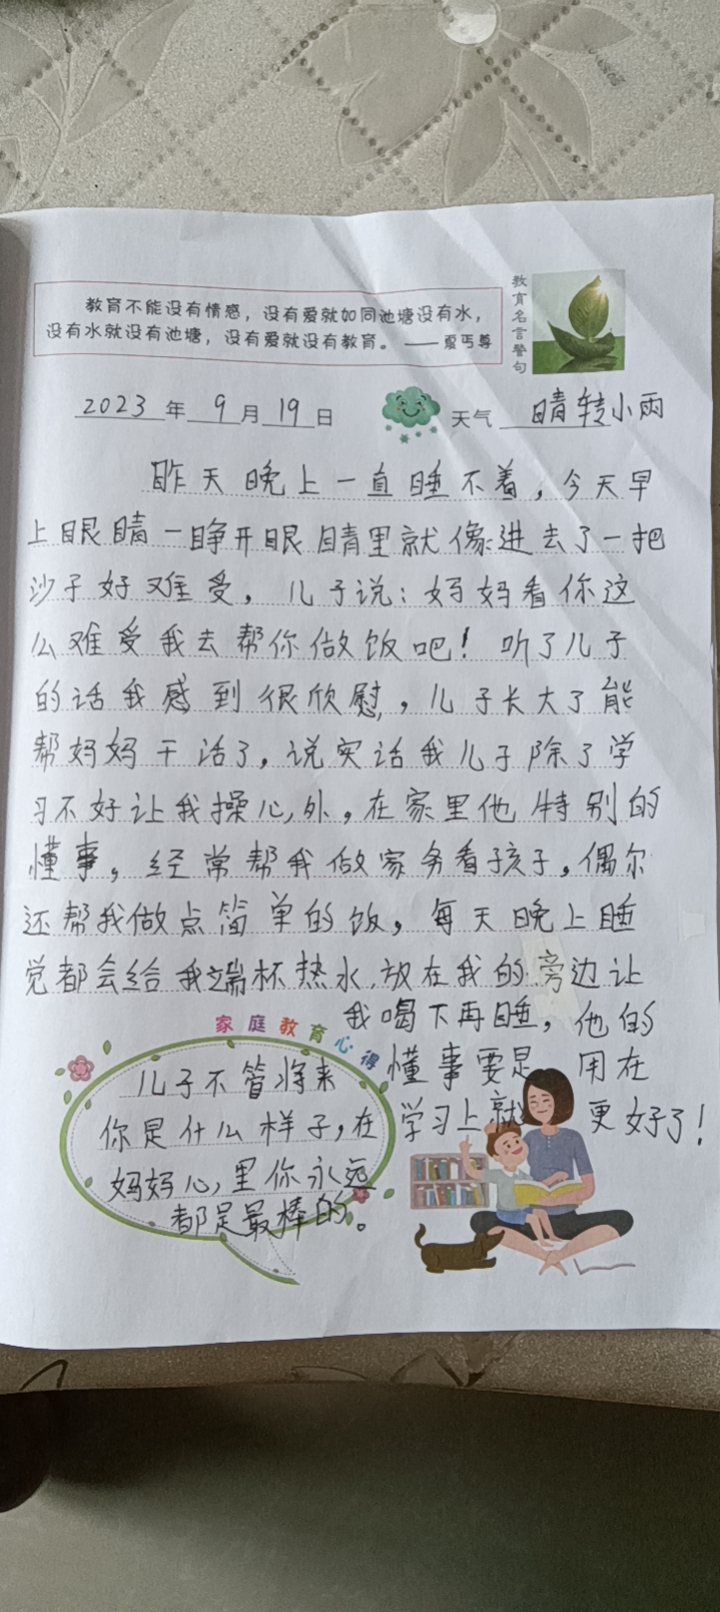 教育不能没有情感，没有爱就如同池塘没有水，
没有水就没有池塘，没有爱就没有教育。 ——夏丐尊
教育名言警句
2023年9月19日
天气 晴转小雨
昨天晚上一直睡不着，今天早
上眼睛一睁开眼睛里就像进去了一把
沙子好难受，儿子说：妈妈看你这
么难受我去帮你做饭吧！听了儿子
的话我感到很欣慰，儿子长大了能
帮妈妈干活了，说实话我儿子除了学
习不好让我操心外，在家里他特别的
懂事，经常帮我做家务看孩子，偶尔
还帮我做点简单的饭，每天晚上睡
觉都会给我端杯热水，放在我的旁边让
我喝下再睡，他的
懂事要是用在
学习上就更好了！
家庭教育心得
儿子不管将来
你是什么样子，在
妈妈心里你永远
都是最棒的。